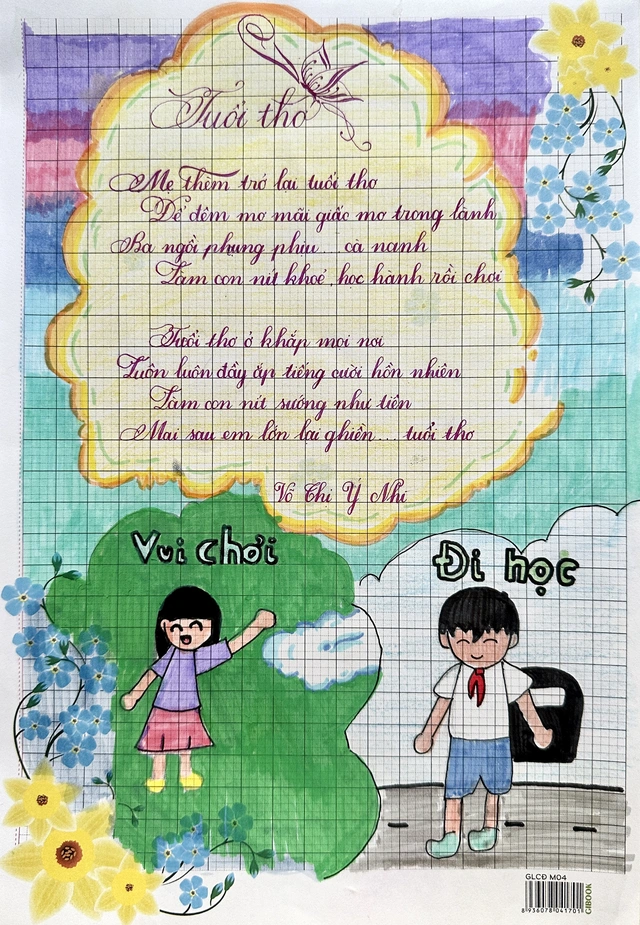 Tuổi thơ
Mẹ thèm trở lại tuổi thơ
Để đêm mơ mãi giấc mơ trong lành
Ba ngồi phụng phịu... cà nanh
Làm con nít khoẻ, học hành rồi chơi
Tuổi thơ ở khắp mọi nơi
Luôn luôn đầy ắp tiếng cười hồn nhiên
Làm con nít sướng như tiên
Mai sau em lớn lại ghiền... tuổi thơ
Võ Thị Ý Nhi
Vui chơi
Đi học
GLCĐ M04
8 936078 041701
GIBOOK